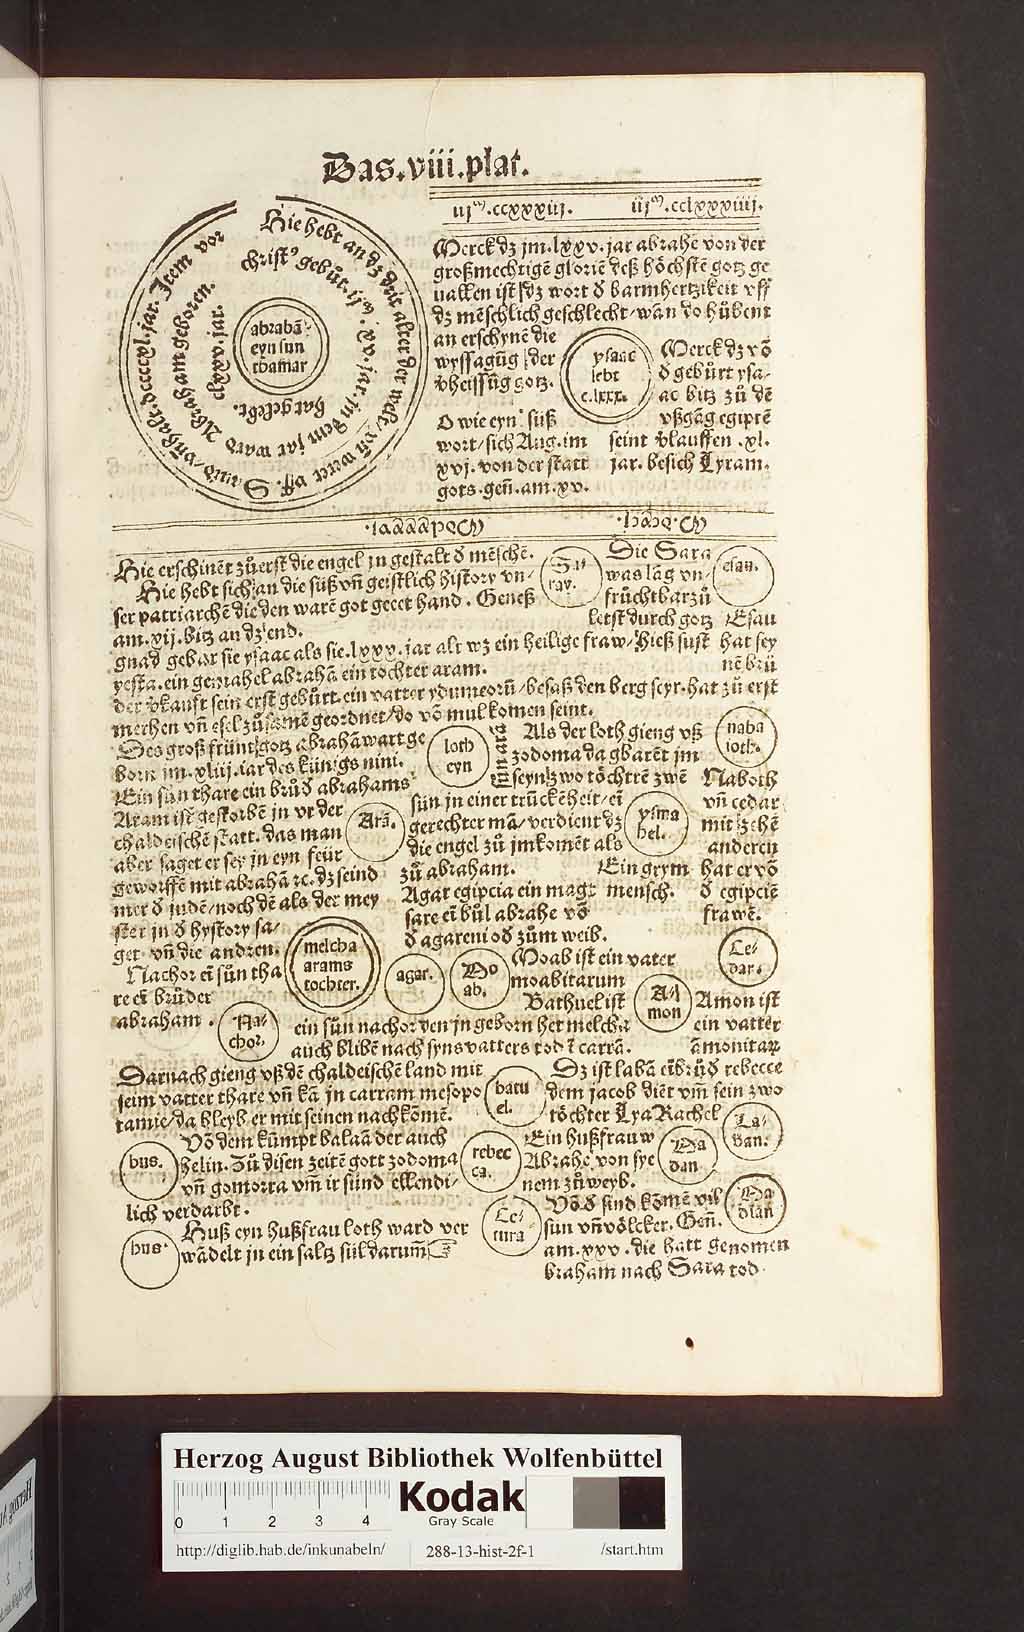 Das.viii.plat.
iijᵐ.ccxxxiij. iijᵐ.cclxxxiiij.
Hie hebt an dz drit alter der welt/ vñ weret vff.
Dauid/ vñ halt.dccccxl.jar. Item vor
christ⁹ gebůrt.ijᵐ.xv.jar. in dem jar ward
Abraham geboren.
hat gelebt. clxxv.jar.
abrahā
eyn sun
thamar
Merck dz jm.lxxv.jar abrahe von der
großmechtigē gloriē deß höchstē gotz ge
uallen ist dz wort d barmhertzikeit vff
dz mēschlich geschlecht/wan do hůbent
an erschynē die
wyssagūg der
vheissūg gotz.
O wie eyn süß
wort/sich Aug.im
xvj.von der statt
gots.geñ.am.xv.
ysaac
lebt
c.lxxx.
Merck dz võ
d gebürt ysa-
ac bitz zů dē
vßgāg egiptē
seint vlauffen .xl.
jar. besich Lyram.
Hie erschinēt zůerst die engel jn gestalt d mēschē.
Hie hebt sich an die süß vñ geistlich history vn-
ser patriarchē die den warē got geeet hand. Geneß
am.xij.bitz an dz end.
Sa-
ray.
Die Sara
was lāg vn-
früchtbar zů
letst durch gotz
esau.
Esau
hat sey
nē brü
gnad gebar sie ysaac als sie.lxxx.jar alt wz ein heilige fraw/hieß sust
yesta.ein gemahel abrahā ein tochter aram.
der vkauft sein erst gebůrt.ein vatter ydumeorū/besaß den berg seyr.hat zů erst
merhen vñ esel zůsamē geordnet/do võ mul komen seint.
Des groß frünt gotz abrahā wart ge
born jm.xliij.jar des künigs nini.
Ein sun thare ein brůd abrahams
Aram ist gestorbē in vr der
chaldeischē statt. das man
aber saget er sey jn eyn feür
geworffē mit abrahā ꝛc.dz seind
mer d judē/noch dē als der mey
ster jn d hystory sa/
get. vñ die andren.
loth
eyn
Arā.
Als der loth gieng vß
zodoma da gbarēt jm
seyn zwo töchtrē zwē
sün jn einer trūckēheit/ei
gerechter mā/verdient dz
die engel zů jm komēt als
zů abraham.
naba
ioth.
Naboth
vñ cedar
mit zehē
anderen
hat er võ
d egipciē
frawē.
ysma
hel.
Ein grym
mensch.
Agar egipcia ein magt
sare ei bůl abrahe võ
d agareni od zům weib.
melcha
arams
tochter.
agar.
Mo
ab.
Moab ist ein vater
moabitarum
Bathuel ist
Ce-
dar.
Nachor ei sun tha
re ei brůder
abraham.
Na-
chor.
A-
mon
Amon ist
ein vatter
amonitaꝝ
ein sun nachor den jn geborn het melcha
auch blibē nach syns vatters tod ī carrā.
Darnach gieng vß dē chaldeischē land mit
seim vatter thare vñ kā jn carram mesopo
tamie/da bleyb er mit seinen nachkōmē.
batu
el.
Dz ist labā ei brůd rebecce
dem jacob diēt vm sein zwo
töchter Lya Rachel
La-
ban.
hus.
Võ dem kümpt balaā der auch
helin. Zů disen zeitē gott zodoma
vñ gomorra vm ir sünd ellendi/
lich verdarbt.
rebec
ca.
Ein hußfrau w
Abrahe von sye
nem zů weyb.
Ma
dan.
bus.
Huß eyn hußfrau loth ward ver
wādelt jn ein saltz sül darum ☞
Ce-
tura
Võ d sind kōmē vil
sun vñ völcker. Geñ.
am.xxv.die hatt genomen
braham nach Sara tod.
Ma
dian
Herzog August Bibliothek Wolfenbüttel
0 1 2 3 4
Kodak
Gray Scale
http://diglib.hab.de/inkunabeln/ 288-13-hist-2f-1 /start.htm